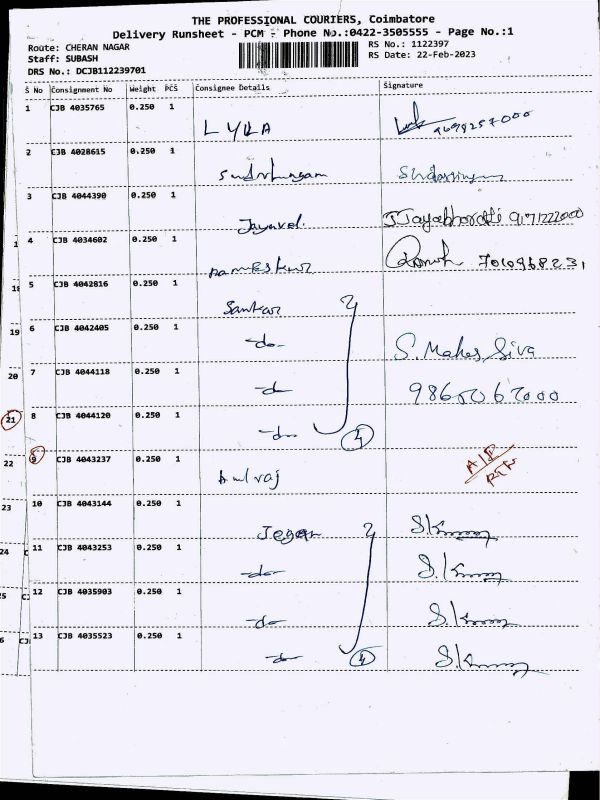 THE PROFESSIONAL COURIERS, Coimbatore
Delivery Runsheet - PCM - Phone No.:0422-3505555 - Page No.:1
Route: CHERAN NAGAR
Staff: SUBASH
DRS No.: DCJB112239701
RS No.: 1122397
RS Date: 22-Feb-2023
S No Consignment No Weight PCS Consignee Details Signature
1 CJB 4035765 0.250 1 LYLA 9698257000
2 CJB 4028615 0.250 1
3 CJB 4044390 0.250 1 Jayavel. J Jayabharathi 9171222000
4 CJB 4034602 0.250 1 Rameshwar 7010968231
18 5 CJB 4042816 0.250 1 Sankar
19 6 CJB 4042405 0.250 1 -do- S. Mahes Siva
20 7 CJB 4044118 0.250 1 -do- 9865062000
21 8 CJB 4044120 0.250 1 -do- 4
22 9 CJB 4043237 0.250 1
23 10 CJB 4043144 0.250 1 Jegan
24 C 11 CJB 4043253 0.250 1 -do-
25 CJ 12 CJB 4035903 0.250 1 -do-
6 CJ 13 CJB 4035523 0.250 1 -do- 4